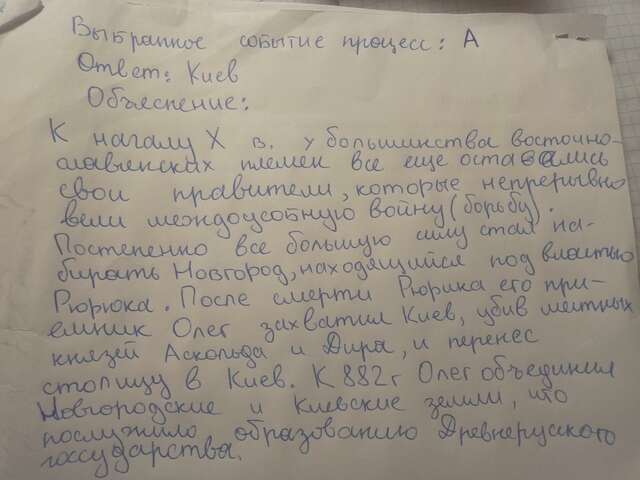 Выбранное событие процесс: А
Ответ: Киев
Объяснение:
К началу X в. у большинства восточно-
славянских племен все еще оставались
свои правители, которые непрерывно
вели междоусобную войну (борьбу).
Постепенно все большую силу стал на-
бирать Новгород, находящийся под властью
Рюрюка. После смерти Рюрика его при-
емник Олег захватил Киев, убив местных
князей Аскольда и Дира, и перенес
столицу в Киев. К 882г Олег объединил
Новгородские и Киевские земли, что
послужило образованию Древнеруского
госсударства.